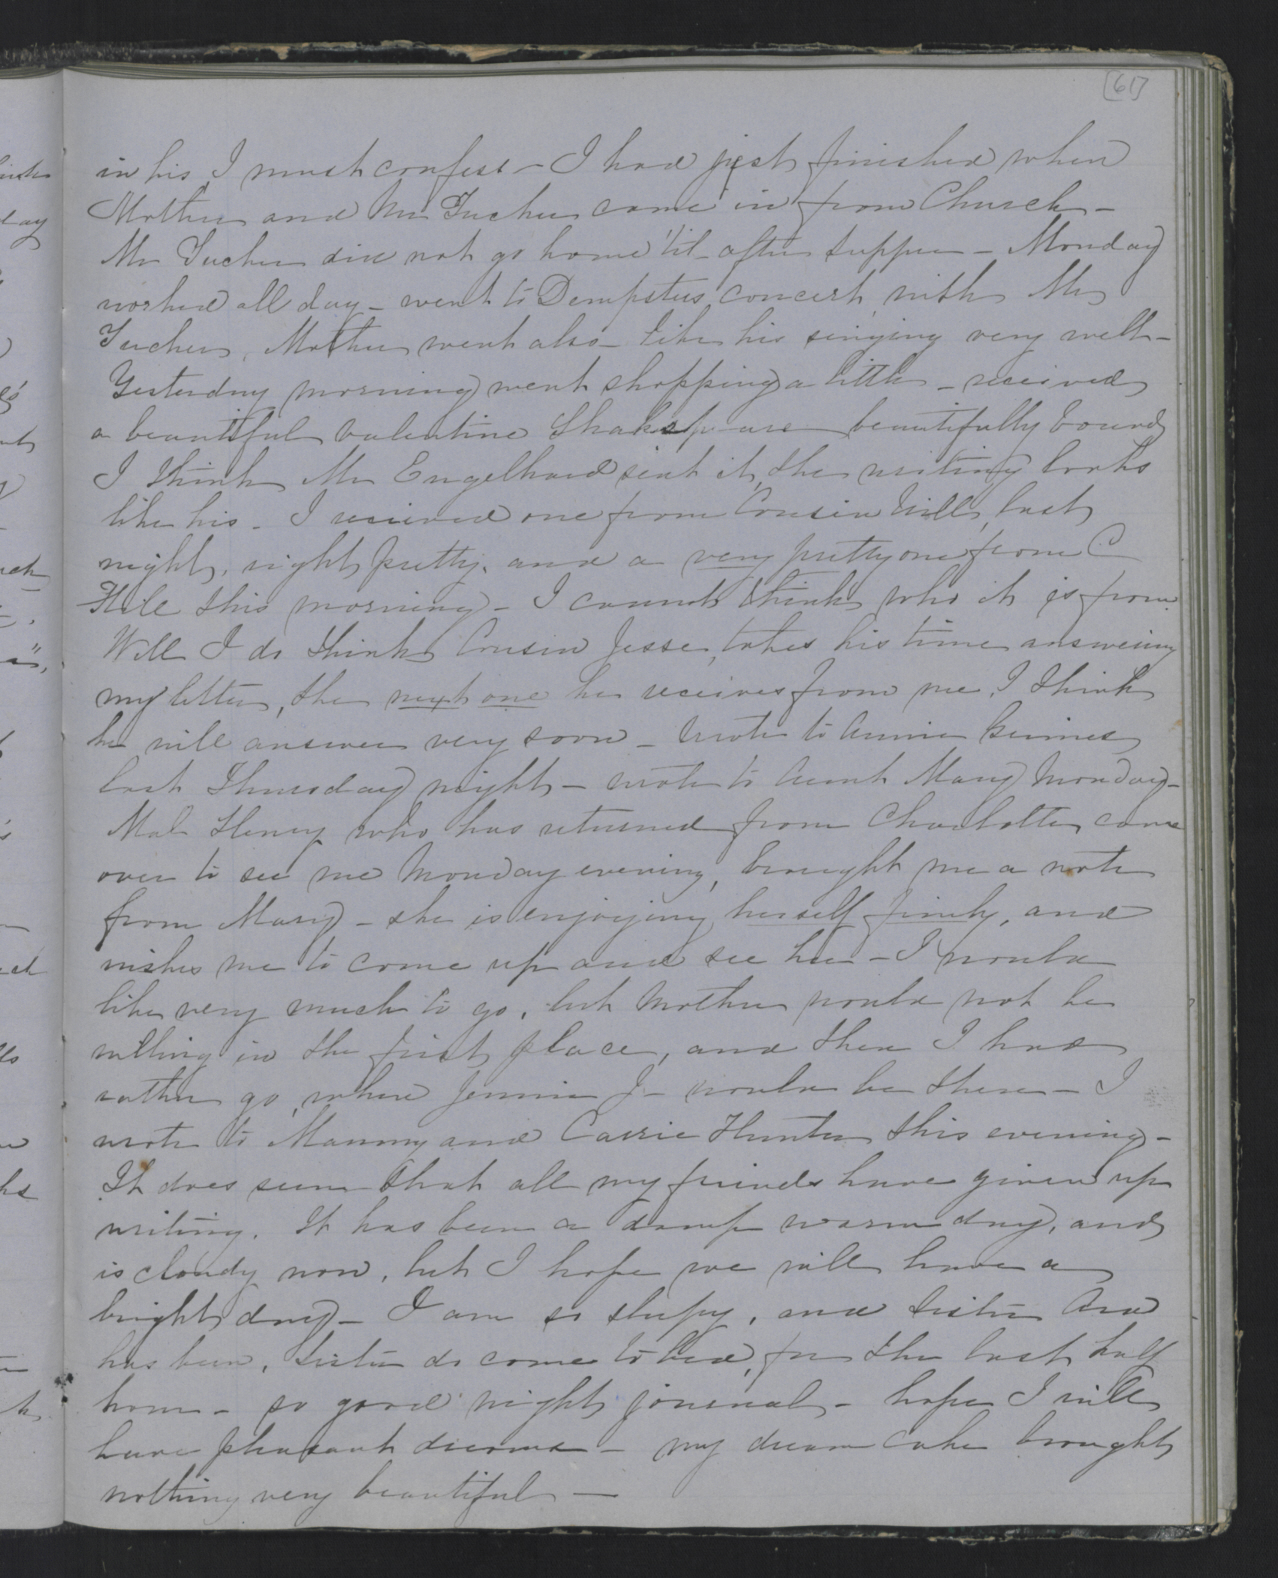 [61]
in his, I must confess – I had just finished when
Mother and Mr Tucker came in from Church –
Mr Tucker did not go home 'til after supper – Monday
worked all day – went to Dempsters concert with Mr
Tucker, Mother went also – like his singing very well –
Yesterday morning went shopping a little – received
a beautiful valentine Shakspeare beautifully bound
I think Mr Engelhard sent it, the writing looks
like his – I received one from Cousin Will, last
night, right pretty, and a very pretty one from C
Hill this morning – I cannot think who it is from
Well I do think Cousin Jesse, takes his time answering
my letter, the next one he receives from me, I think
he will answer very soon – wrote to Annie
last Thursday night – wrote to Aunt Mary Monday –
Mal Henry who has returned from Charlotte, came
over to see me Monday evening, brought me a note
from Mary – she is enjoying herself finely, and
wishes me to come up and see her – I would
like very much to go, but Mother would not be
willing in the first place, and then I had
rather go, when Jennie J– would be there – I
wrote to Mammy and Carrie Hunter this evening –
It does seem that all my friends have given up
writing. It has been a damp warm day, and
is cloudy now, but I hope we will have a
bright day – I am so sleepy, and Sister And
has been, Sister do come to bed, for the last half
hour – so good night journal – hope I will
have pleasant dreams – my dream cake brought
nothing very beautiful –